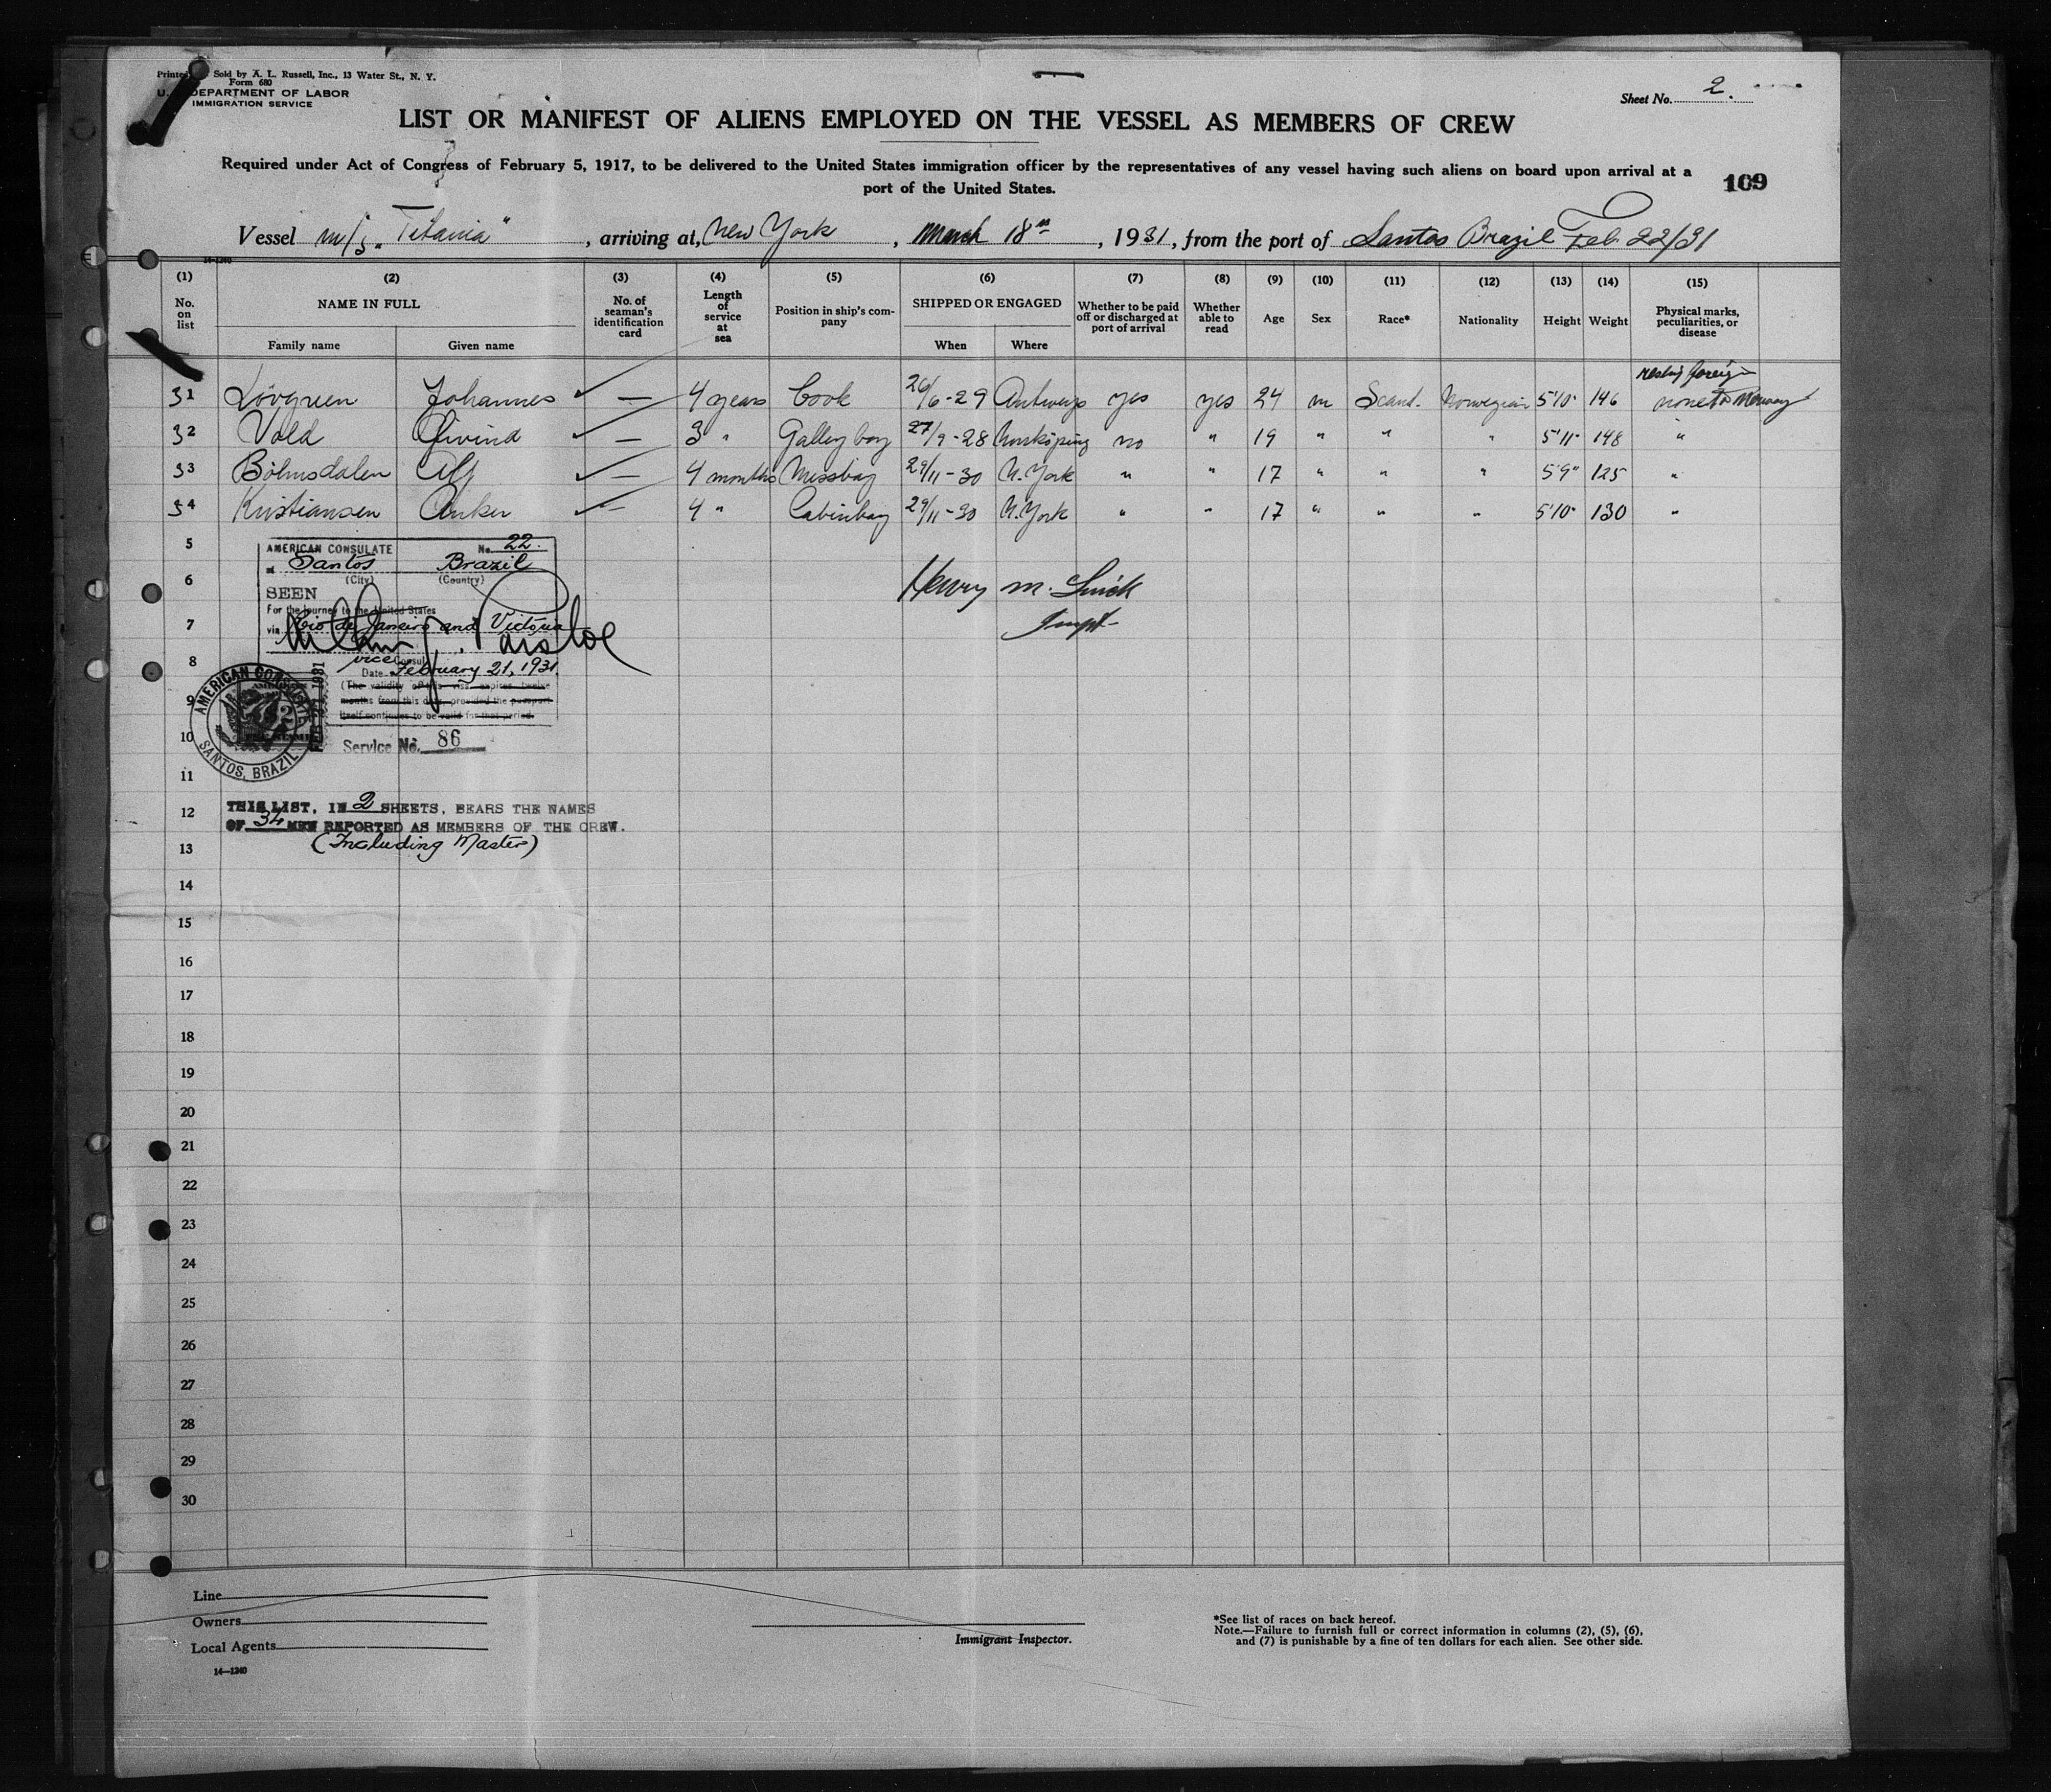 Printed Sold by A. L. Russell, Inc., 13 Water St., N. Y.
Form 680
U. DEPARTMENT OF LABOR
IMMIGRATION SERVICE
Sheet No. 2.
LIST OR MANIFEST OF ALIENS EMPLOYED ON THE VESSEL AS MEMBERS OF CREW
Required under Act of Congress of February 5, 1917, to be delivered to the United States immigration officer by the representatives of any vessel having such aliens on board upon arrival at a
port of the United States.
169
Vessel m/s "Titania", arriving at, New York, March 18th, 1931, from the port of Santos Brazil Feb. 22/31
14-1240
(1) (2) (3) (4) (5) (6) (7) (8) (9) (10) (11) (12) (13) (14) (15)
No. on list NAME IN FULL Family name Given name No. of seaman's identification card Length of service at sea Position in ship's company SHIPPED OR ENGAGED When Where Whether to be paid off or discharged at port of arrival Whether able to read Age Sex Race* Nationality Height Weight Physical marks, peculiarities, or disease
31 Lövgreen Johannes ✓ — 4 years Cook 26/6-29 Antwerp yes yes 24 m Scand. Norwegian 5'10" 146 none
32 Vold Øivind ✓ — 3 " Galley boy 27/9-28 Norrköping no " 19 " " " 5'11" 148 "
33 Bölmsdalen Alf ✓ — 4 months Messboy 29/11-30 N. York " " 17 " " " 5'9" 125 "
34 Kristiansen Anker ✓ — 4 " Cabinboy 29/11-30 N. York " " 17 " " " 5'10" 130 "
5
AMERICAN CONSULATE No. 22.
at Santos Brazil
(City) (Country)
6
SEEN
For the journey to the United States
via Rio de Janeiro and Victoria
Henry M.
Inspt
7
8
vice Consul
Date February 21, 1931.
(The validity of this visa expires twelve
months from this date, provided the passport
itself continues to be valid for that period.
9
AMERICAN CONSULATE
SANTOS, BRAZIL
10
Service No. 86
11
12
THIS LIST, IN 2 SHEETS, BEARS THE NAMES
OF 34 MEN REPORTED AS MEMBERS OF THE CREW.
(Including Master)
13
14
15
16
17
18
19
20
21
22
23
24
25
26
27
28
29
30
Line
Owners
Local Agents
14—1240
Immigrant Inspector.
*See list of races on back hereof.
Note.—Failure to furnish full or correct information in columns (2), (5), (6),
and (7) is punishable by a fine of ten dollars for each alien. See other side.